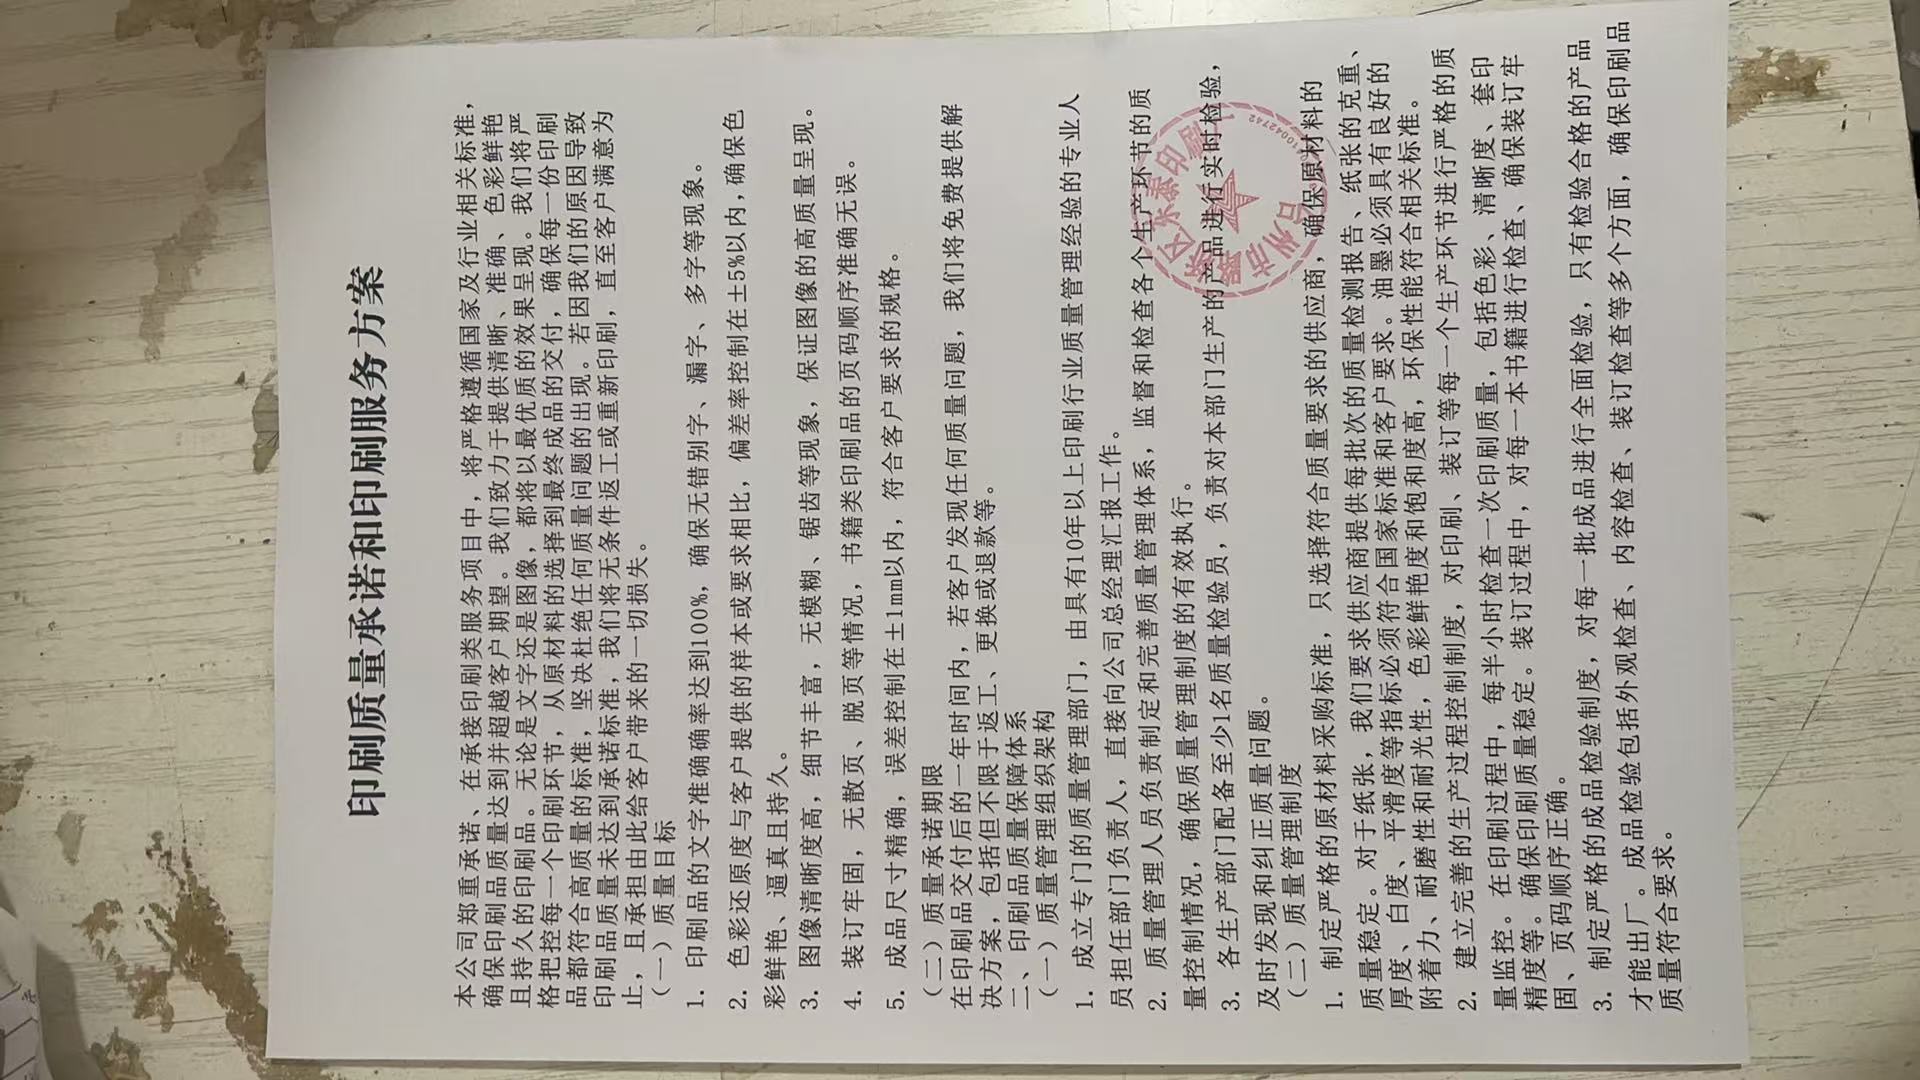 印刷质量承诺和印刷服务方案
本公司郑重承诺、在承接印刷类服务项目中，将严格遵循国家及行业相关标准，
确保印刷品质量达到并超越客户期望。我们致力于提供清晰、准确、色彩鲜艳
且持久的印刷品。无论是文字还是图像，都将以最优质的效果呈现。我们将严
格把控每一个印刷环节，从原材料的选择到最终成品的交付，确保每一份印刷
品都符合高质量的标准，坚决杜绝任何质量问题的出现。若因我们的原因导致
印刷品质量未达到承诺标准，我们将无条件返工或重新印刷，直至客户满意为
止，且承担由此给客户带来的一切损失。
（一）质量目标
1. 印刷品的文字准确率达到100%，确保无错别字、漏字、多字等现象。
2. 色彩还原度与客户提供的样本或要求相比，偏差率控制在±5%以内，确保色
彩鲜艳、逼真且持久。
3. 图像清晰度高，细节丰富，无模糊、锯齿等现象，保证图像的高质量呈现。
4. 装订牢固，无散页、脱页等情况，书籍类印刷品的页码顺序准确无误。
5. 成品尺寸精确，误差控制在±1mm以内，符合客户要求的规格。
（二）质量承诺期限
在印刷品交付后的一年时间内，若客户发现任何质量问题，我们将免费提供解
决方案，包括但不限于返工、更换或退款等。
二、印刷品质量保障体系
（一）质量管理组织架构
1. 成立专门的质量管理部门，由具有10年以上印刷行业质量管理经验的专业人
员担任部门负责人，直接向公司总经理汇报工作。
2. 质量管理人员负责制定和完善质量管理体系，监督和检查各个生产环节的质
量控制情况，确保质量管理制度的有效执行。
3. 各生产部门配备至少1名质量检验员，负责对本部门生产的产品进行实时检验，
及时发现和纠正质量问题。
（二）质量管理制度
1. 制定严格的原材料采购标准，只选择符合质量要求的供应商，确保原材料的
质量稳定。对于纸张，我们要求供应商提供每批次的质量检测报告、纸张的克重、
厚度、白度、平滑度等指标必须符合国家标准和客户要求。油墨必须具有良好的
附着力、耐磨性和耐光性，色彩鲜艳度和饱和度高，环保性能符合相关标准。
2. 建立完善的生产过程控制制度，对印刷、装订等每一个生产环节进行严格的质
量监控。在印刷过程中，每半小时检查一次印刷质量，包括色彩、清晰度、套印
精度等。确保印刷质量稳定。装订过程中，对每一本书籍进行检查、确保装订牢
固、页码顺序正确。
3. 制定严格的成品检验制度，对每一批成品进行全面检验，只有检验合格的产品
才能出厂。成品检验包括外观检查、内容检查、装订检查等多个方面，确保印刷品
质量符合要求。